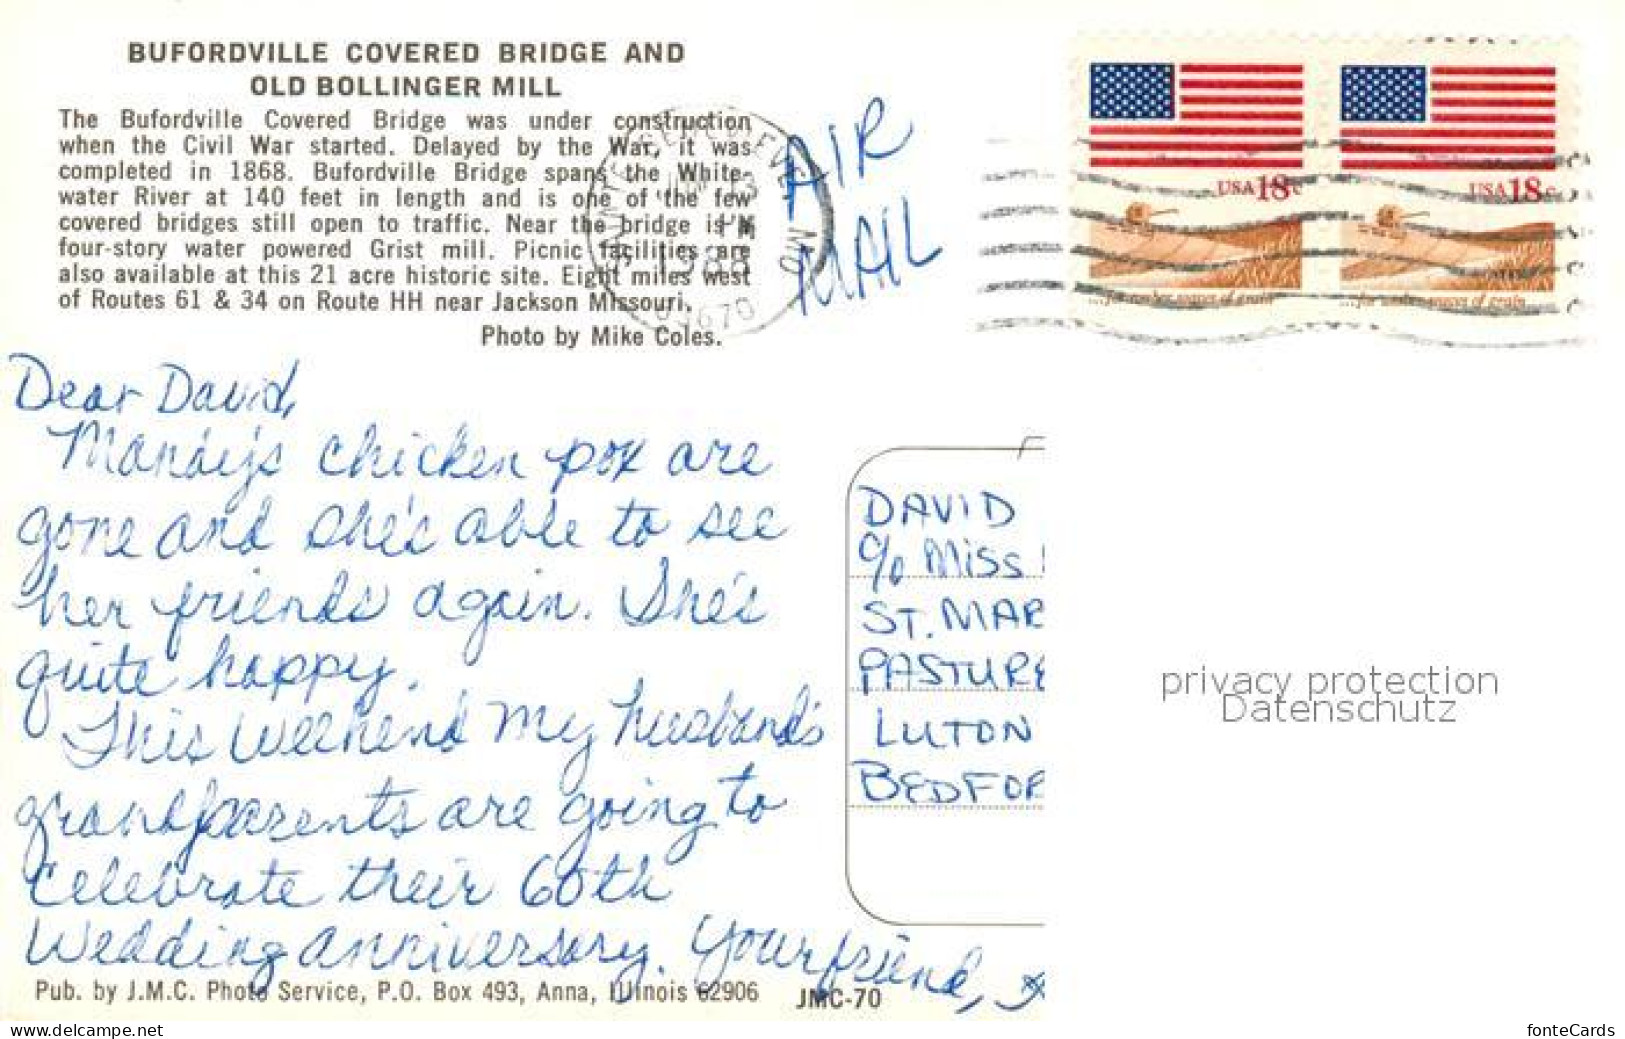 BUFORDVILLE COVERED BRIDGE AND
OLD BOLLINGER MILL
The Bufordville Covered Bridge was under construction
when the Civil War started. Delayed by the War, it was
completed in 1868. Bufordville Bridge spans the White-
water River at 140 feet in length and is one of the few
covered bridges still open to traffic. Near the bridge is a
four-story water powered Grist mill. Picnic facilities are
also available at this 21 acre historic site. Eight miles west
of Routes 61 & 34 on Route HH near Jackson Missouri.
Photo by Mike Coles.
AIR
MAIL
USA 18c
...for amber waves of grain
USA 18c
...for amber waves of grain
63670
Dear David,
Mandy's chicken pox are
gone and she's able to see
her friends again. She's
quite happy.
This weekend my husband's
grandparents are going to
celebrate their 60th
Wedding anniversary. Your friend,
DAVID
c/o MISS
ST. MAR
PASTURE
LUTON
BEDFOR
privacy protection
Datenschutz
Pub. by J.M.C. Photo Service, P.O. Box 493, Anna, Illinois 62906 JMC-70
www.delcampe.net
fonteCards